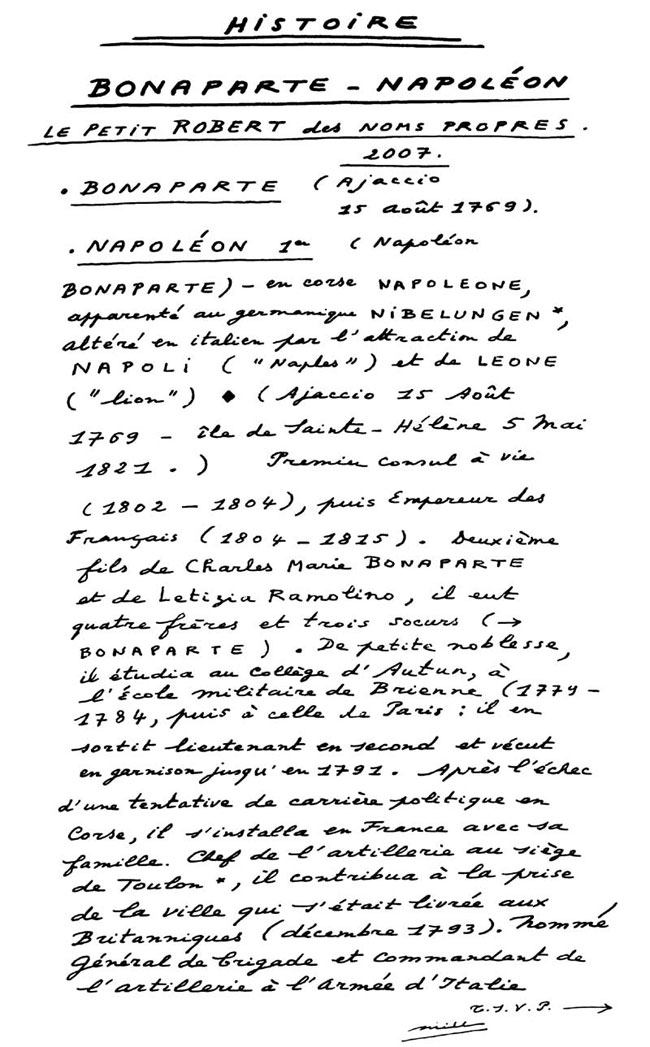 HISTOIRE
BONAPARTE - NAPOLÉON
LE PETIT ROBERT des NOMS PROPRES.
2007.
. BONAPARTE (Ajaccio
15 août 1769).
. NAPOLÉON 1er (Napoléon
BONAPARTE) - en corse NAPOLEONE,
apparenté au germanique NIBELUNGEN *,
altéré en italien par l'attraction de
NAPOLI ("Naples") et de LEONE
("lion") ◆ (Ajaccio 15 Août
1769 - île de Sainte-Hélène 5 Mai
1821.) Premier consul à vie
(1802 - 1804), puis Empereur des
Français (1804 - 1815). Deuxième
fils de Charles Marie BONAPARTE
et de Letizia Ramolino, il eut
quatre frères et trois soeurs (→
BONAPARTE). De petite noblesse,
il étudia au collège d'Autun, à
l'École militaire de Brienne (1779 -
1784, puis à celle de Paris : il en
sortit lieutenant en second et vécut
en garnison jusqu'en 1791. Après l'échec
d'une tentative de carrière politique en
Corse, il s'installa en France avec sa
famille. Chef de l'artillerie au siège
de Toulon *, il contribua à la prise
de la ville qui s'était livrée aux
Britanniques (décembre 1793). Nommé
Général de brigade et commandant de
l'artillerie à l'Armée d'Italie
T.S.V.P. →